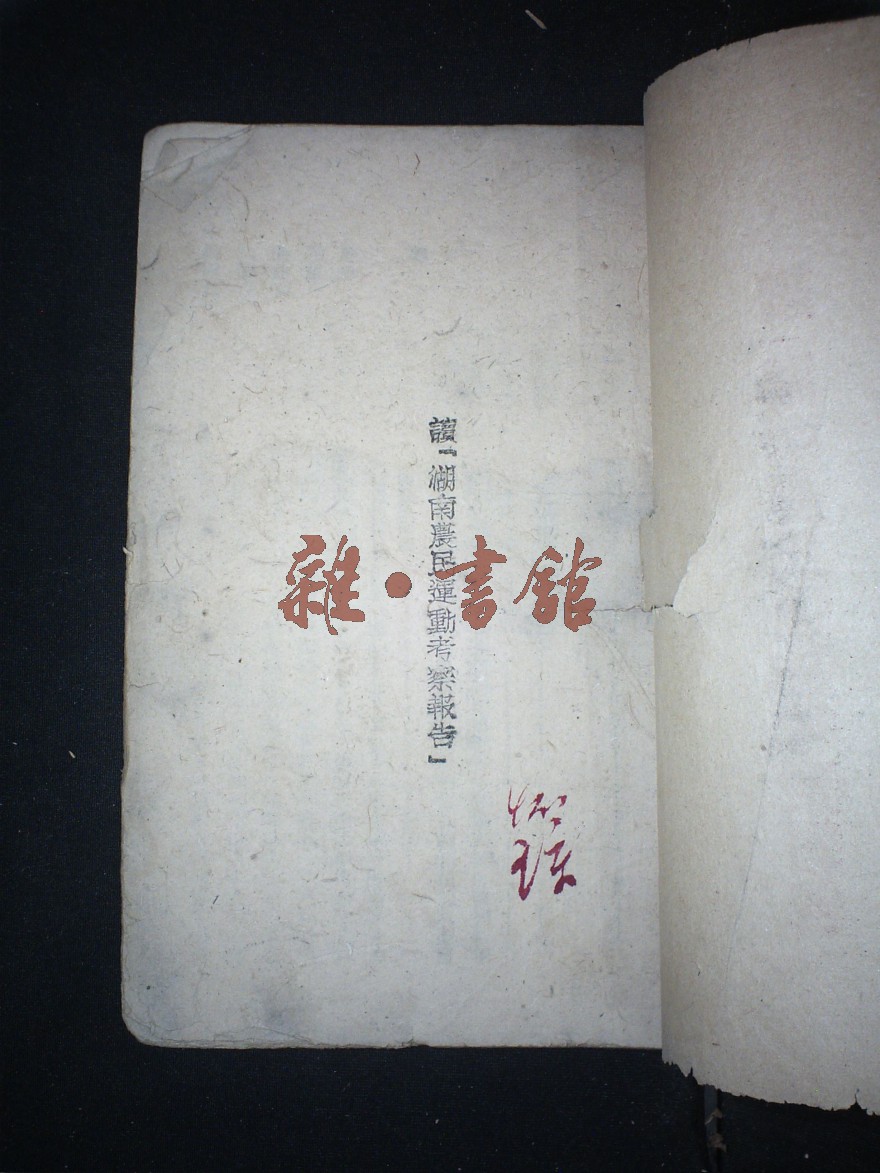 讀「湖南農民運動考察報告」
雜·書館